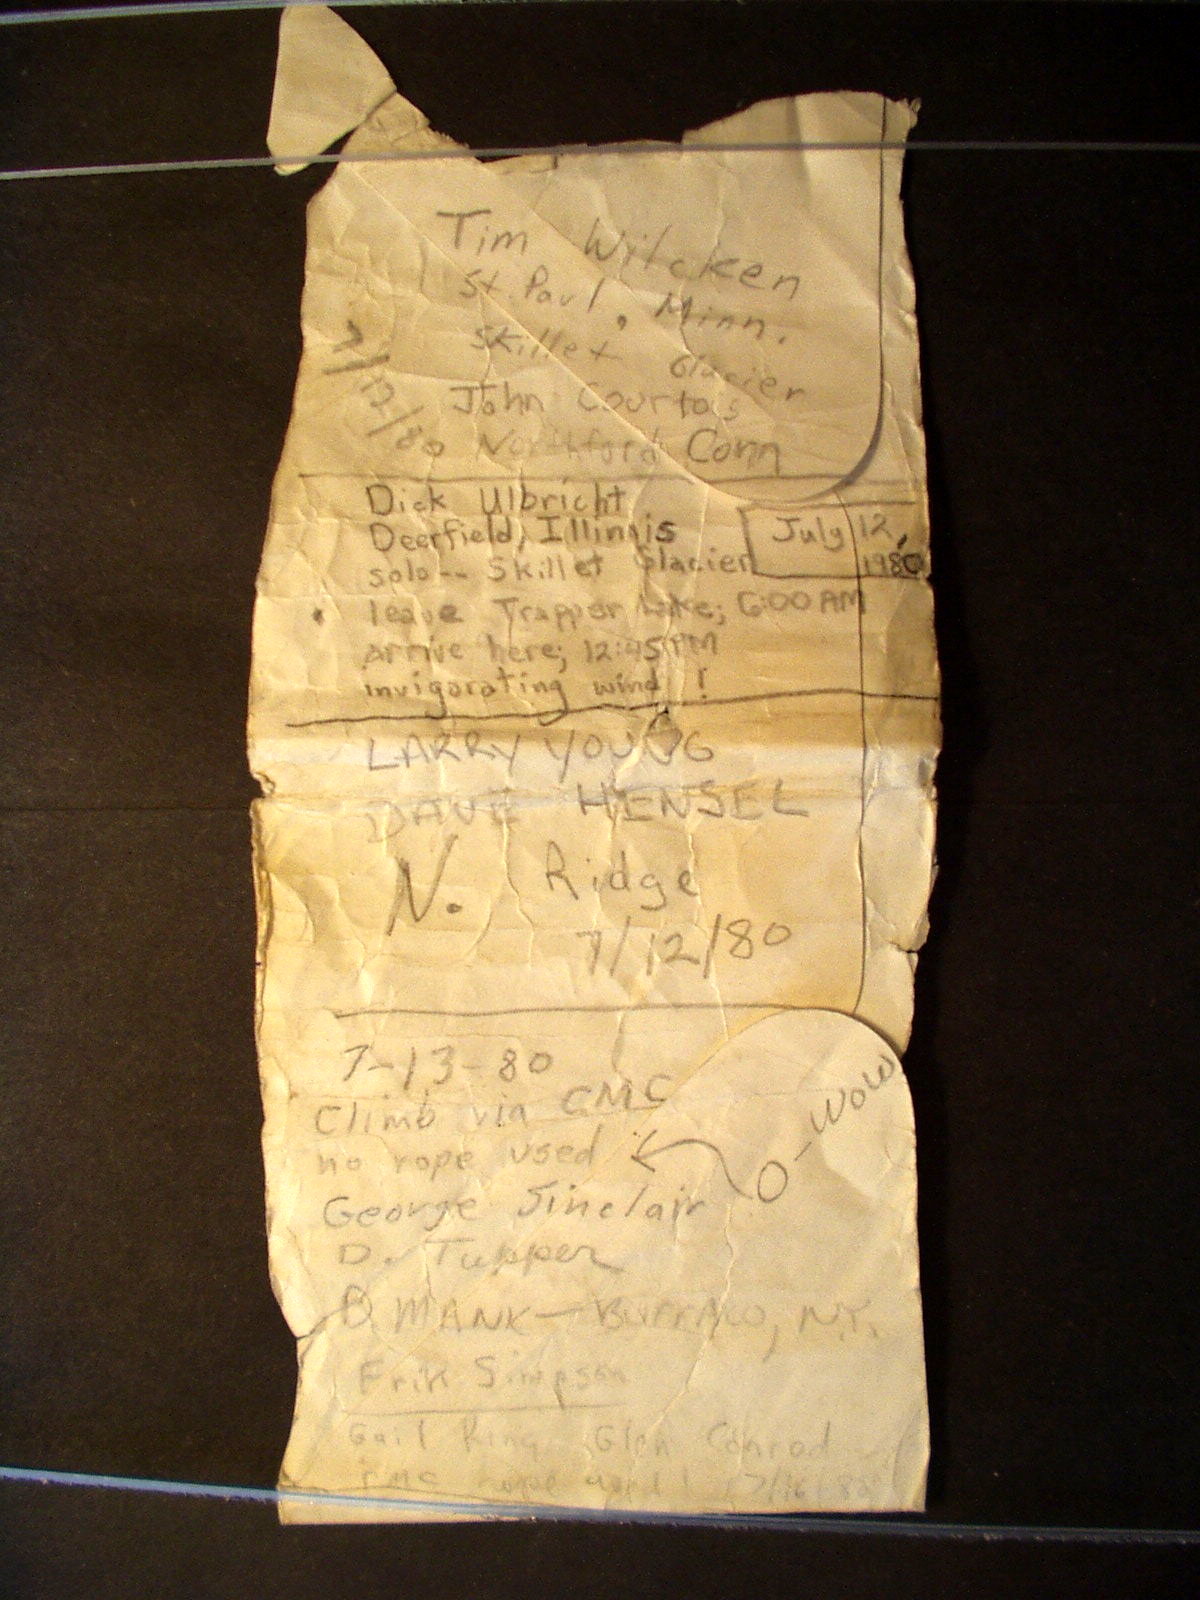 Tim Wilcken
St. Paul, Minn.
Skillet Glacier
John Courtois
Northford Conn
Dick Ulbricht
Deerfield, Illinois
July 12,
1980
solo-- Skillet Glacier
leave Trapper Lake; 6:00 AM
arrive here; 12:45 PM
invigorating wind!
LARRY YOUNG
DAVE HENSEL
N. Ridge
7/12/80
7-13-80
Climb via CMC
no rope used
O-WOW
George Sinclair
D. Tupper
B MANK — BUFFALO, N.Y.
Erik Simpson
Gail King Glen Conrod
CMC rope used! 7/16/80